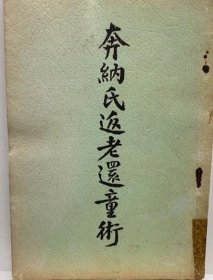 奔納氏返老還童術